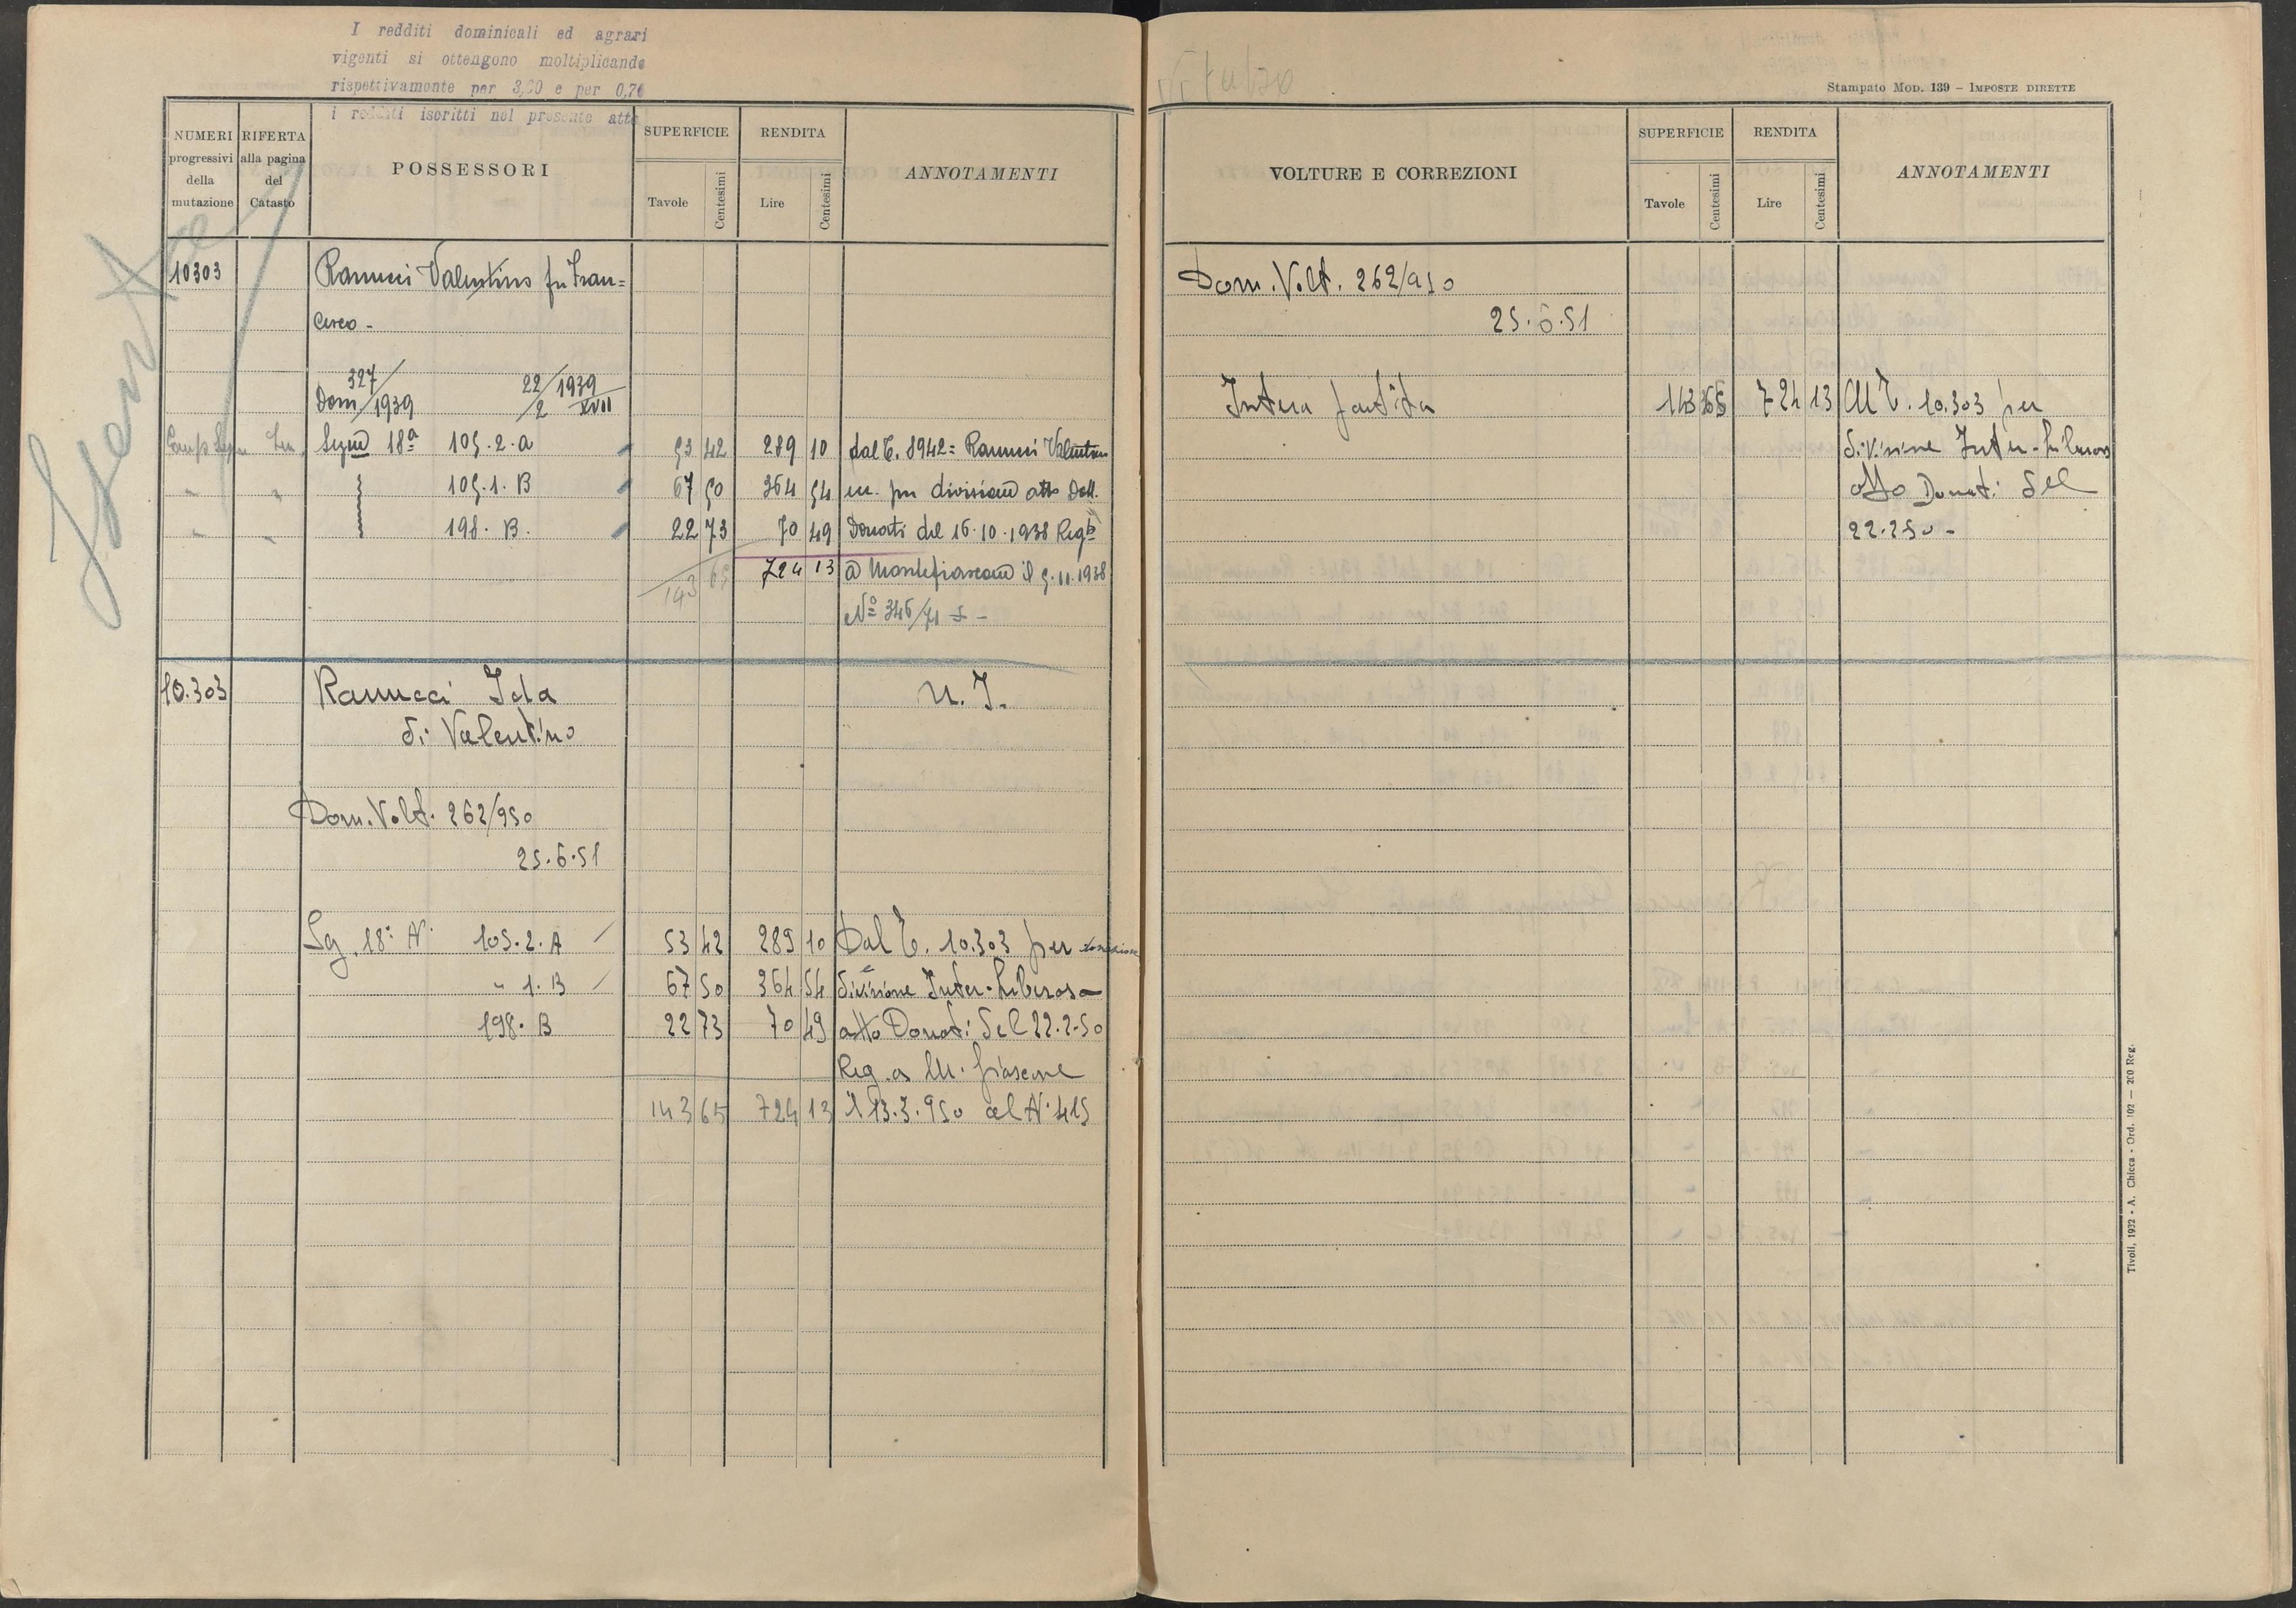 I redditi dominicali ed agrari
vigenti si ottengono moltiplicando
rispettivamente per 3,20 e per 0,76
i redditi iscritti nel presente atto
NUMERI progressivi della mutazione
RIFERTA alla pagina del Catasto
POSSESSORI
SUPERFICIE
Tavole Centesimi
RENDITA
Lire Centesimi
ANNOTAMENTI
Esente
10303 Ranucci Valentino fu Fran=
cesco -
Dom 327/1939 22/2 1939 XVII
Segnò 18ª 105.2.a 53 42 289 10 dal T. 8942= Ranucci Valentino
" " 105.1.B 67 50 364 54 per divisione atto Dott.
" " 198.B. 22 73 70 49 Donati del 16.10.1938 Regto
143 65 724 13 a Montefiascone il 5.11.1938
No 346/71
10.303 Ranucci Ida U. I.
di Valentino
Dom. Volt. 262/950
25.6.51
Sg. 18ª N. 105.2.A 53 42 289 10 Dal T. 10.303 per donazione
" 1.B 67 50 364 54 e divisione Inter-Liberos a
198.B 22 73 70 49 atto Donati del 22.2.50
Reg. a M. fiascone
143 65 724 13 il 13.3.950 al N. 415
Stampato Mod. 139 – Imposte dirette
VOLTURE E CORREZIONI
SUPERFICIE
Tavole Centesimi
RENDITA
Lire Centesimi
ANNOTAMENTI
Dom. Volt. 262/950
25.6.51
Intera partita 143 65 724 13 Al T. 10.303 per
divisione Inter-Liberos
atto Donati del
22.2.50 -
Tivoli, 1932 - A. Chicca - Ord. 102 — 200 Reg.